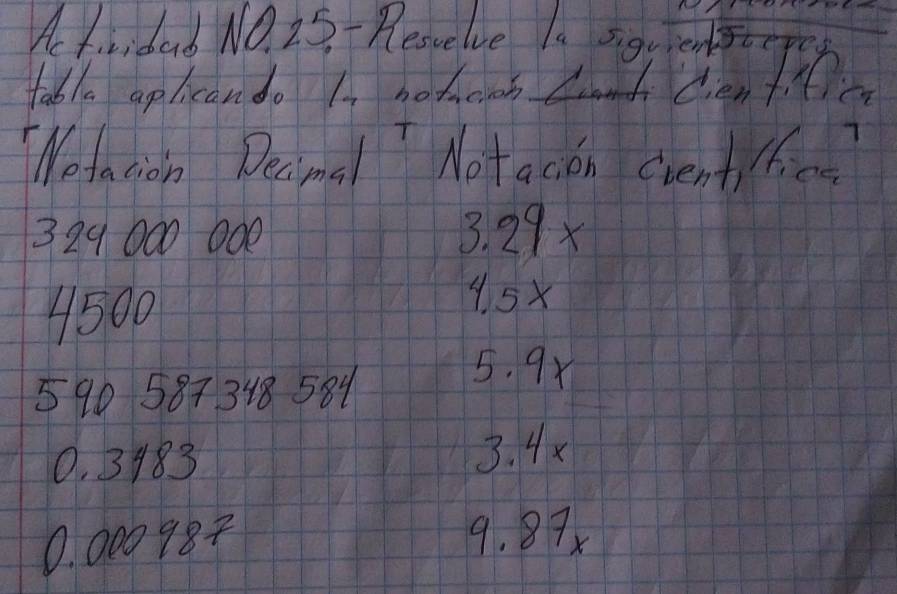 Actividad NO.25.- Resuelve la siguiente
tabla aplicando la notación Cientifica
Notación Decimal Notación Cientifica
324 000 000 3.24 x
4500 4.5 x
590 587 348 584 5.9 x
0.3483 3.4 x
0.000987 9.87 x